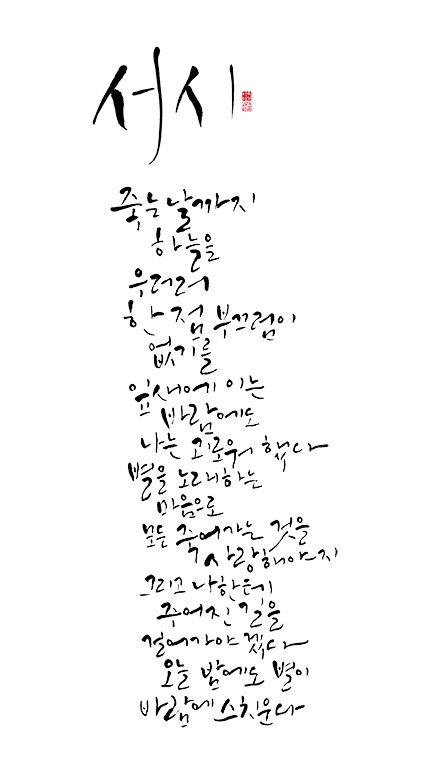 서시
죽는 날까지
하늘을
우러러
한 점 부끄럼이
없기를
잎새에 이는
바람에도
나는 괴로워 했다
별을 노래하는
마음으로
모든 죽어가는 것을
사랑해야지
그리고 나한테
주어진 길을
걸어가야겠다
오늘 밤에도 별이
바람에 스치운다